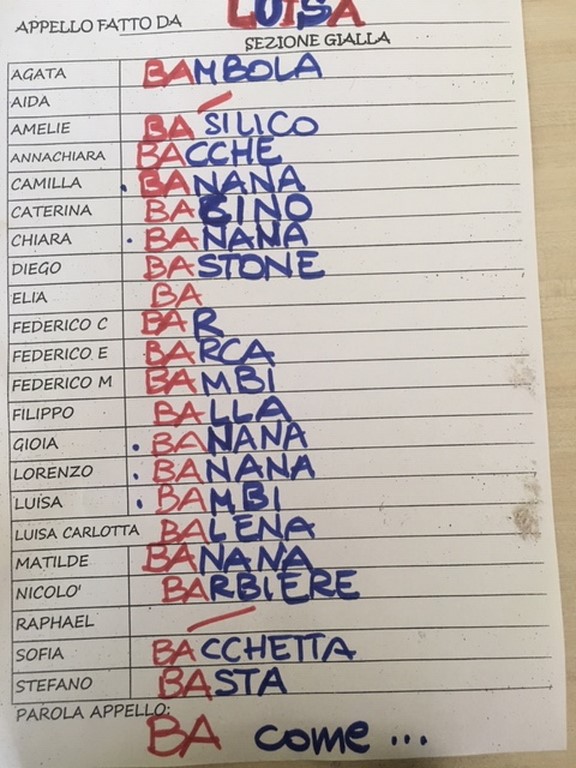 APPELLO FATTO DA LUISA
SEZIONE GIALLA
AGATA BAMBOLA
AIDA
AMELIE BASILICO
ANNACHIARA BACCHE
CAMILLA BANANA
CATERINA BACINO
CHIARA BANANA
DIEGO BASTONE
ELIA BA
FEDERICO C BAR
FEDERICO E BARCA
FEDERICO M BAMBI
FILIPPO BALLA
GIOIA BANANA
LORENZO BANANA
LUISA BAMBI
LUISA CARLOTTA BALENA
MATILDE BANANA
NICOLO' BARBIERE
RAPHAEL
SOFIA BACCHETTA
STEFANO BASTA
PAROLA APPELLO:
BA come ...